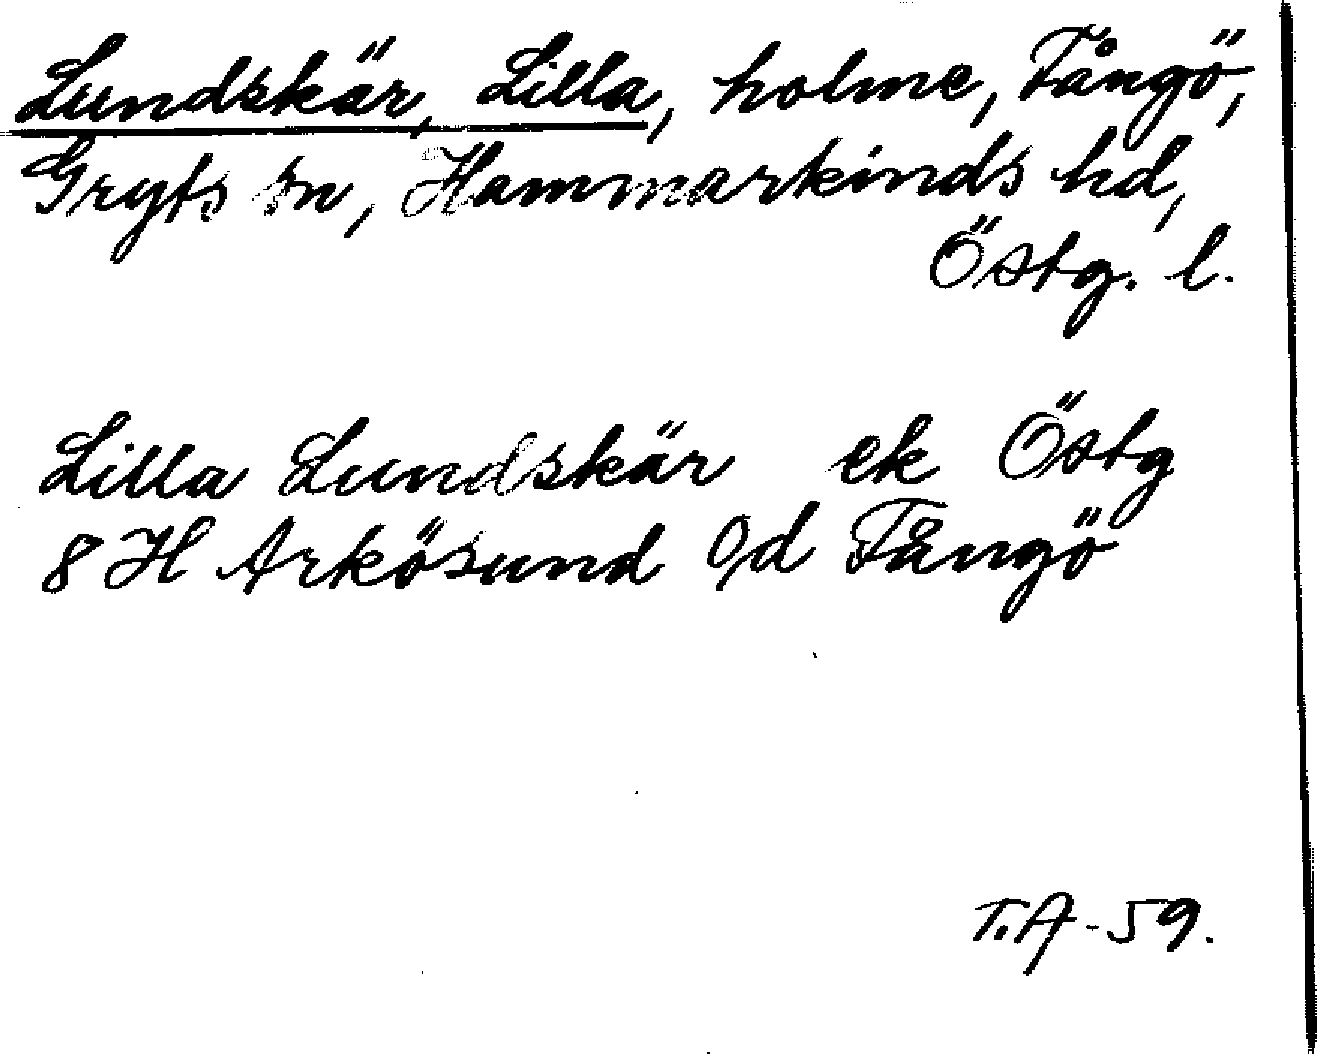 Lundskär, Lilla, holme, Fångö,
Gryts sn, Hammarkinds hd,
Östg. l.
Lilla Lundskär ek Östg
8 H Arkösund o/d Fångö
T.A-59.